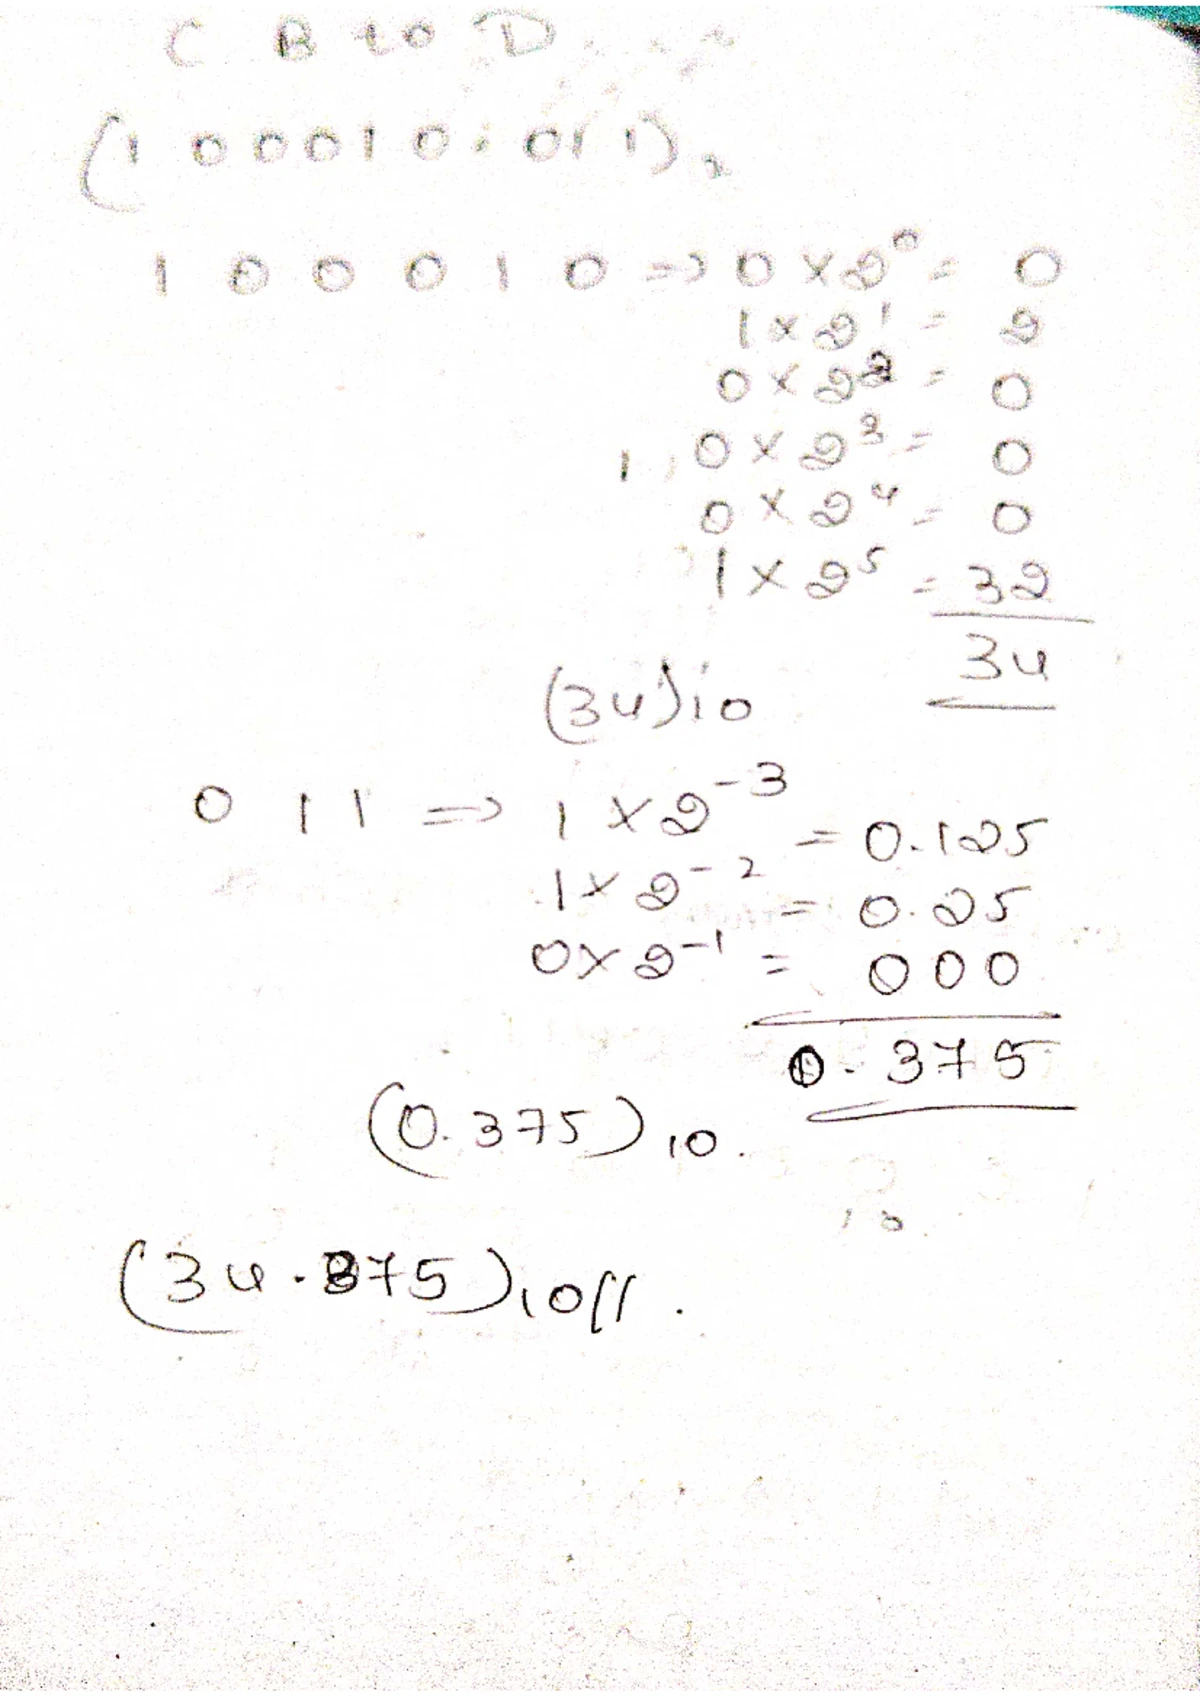 C B to D
(100010.011)2
1 0 0 0 1 0 => 0 × 2^0 = 0
1 × 2^1 = 2
0 × 2^2 = 0
0 × 2^3 = 0
0 × 2^4 = 0
1 × 2^5 = 32
34
(34)10
0 1 1 => 1 × 2^-3 = 0.125
1 × 2^-2 = 0.25
0 × 2^-1 = 000
0.375
(0.375)10.
(34.375)10//.